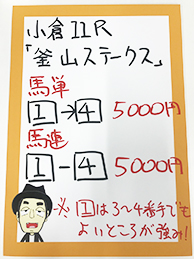 小倉11R
「釜山ステークス」
馬単
1→4 5000円
馬連
1-4 5000円
※1は3〜4番手でも
よいところが強み!